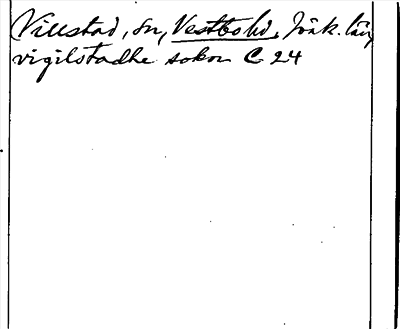 Villstad, sn, Vestbo hd, Jönk. län
vigilstadhe sokn C 24